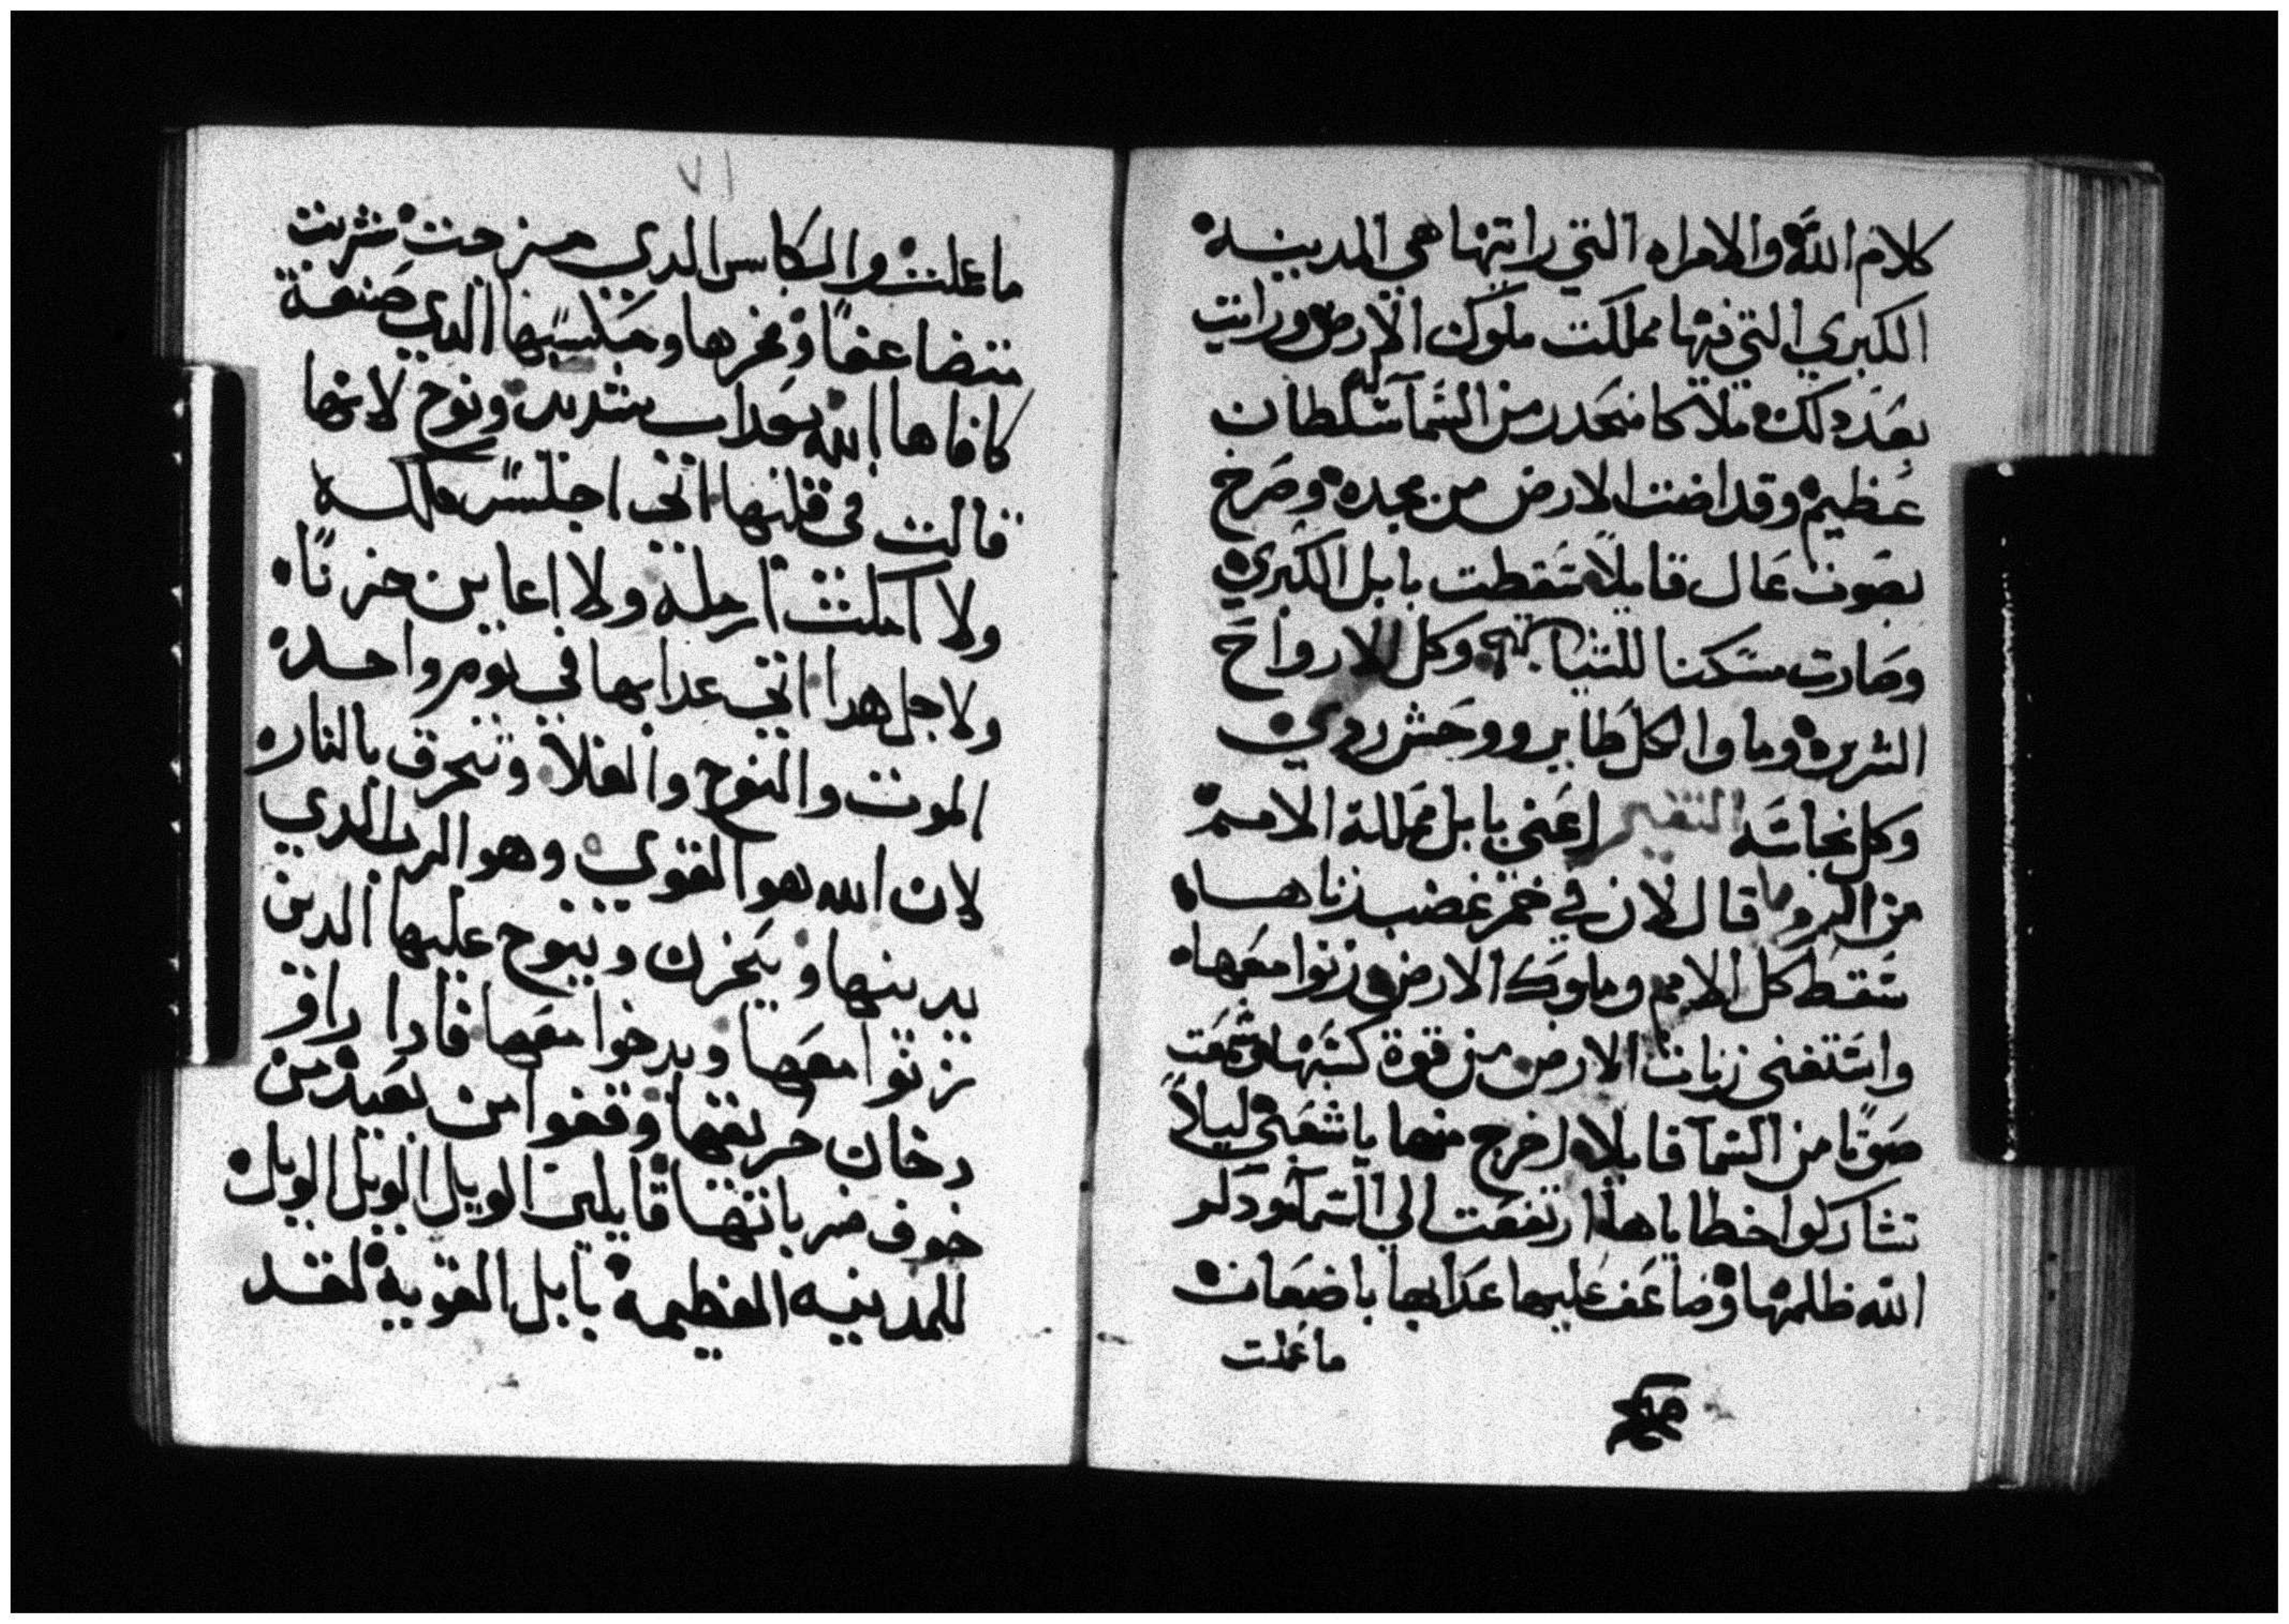 كلام الله والامراه التي رايتها هي المدينه
الكبري التي فيها مملكت ملوك الارض ورايت
بعد دلك ملاكا منحدر من السما له سلطان
عظيم وقد اضت الارض من مجده وصرخ
بصوت عال قايلا سقطت بابل الكبري
وصارت مسكنا للشياطين وكل الارواح
الشريره وماوا لكل طاير ووحش ردي
وكل نجاسه التفسير اعني بابل مملكة الامم
من الروم قال لان في خمر غضب زناها
سقط كل الامم وملوك الارض زنوا معها
واستغني زنات الارض من قوة كسبها وسمعت
صوتا من السما قايلا اخرج منها يا شعبي ليلا
تشاركوا خطاياها ارتفعت الي السما ودكر
الله ظلمها وضاعف عليها عدابها باضعاف
ما عملت
٧١
ما عملت والكاس الدي مزجت شربت
متضاعفا وفخرها وجنسها الدي صنعة
كافاها الله بعداب شديد ونوح لانها
قالت في قلبها اني اجلس ملكه
ولا اكلت ارمله ولا اعاين حزنا
ولاجل هدا اتي عدابها في يوم واحده
الموت والنوح والغلا وتحرق بالنار
لان الله هو القوي وهو الرب الدي
يدينها ويحزن وينوح عليها الدين
زنوا معها وبدخوا معها فادا راو
دخان حريقها وقفوا من بعيد من
خوف ضرباتها قايلين الويل الويل الويل
للمدينه العظيمه بابل القويه لقد